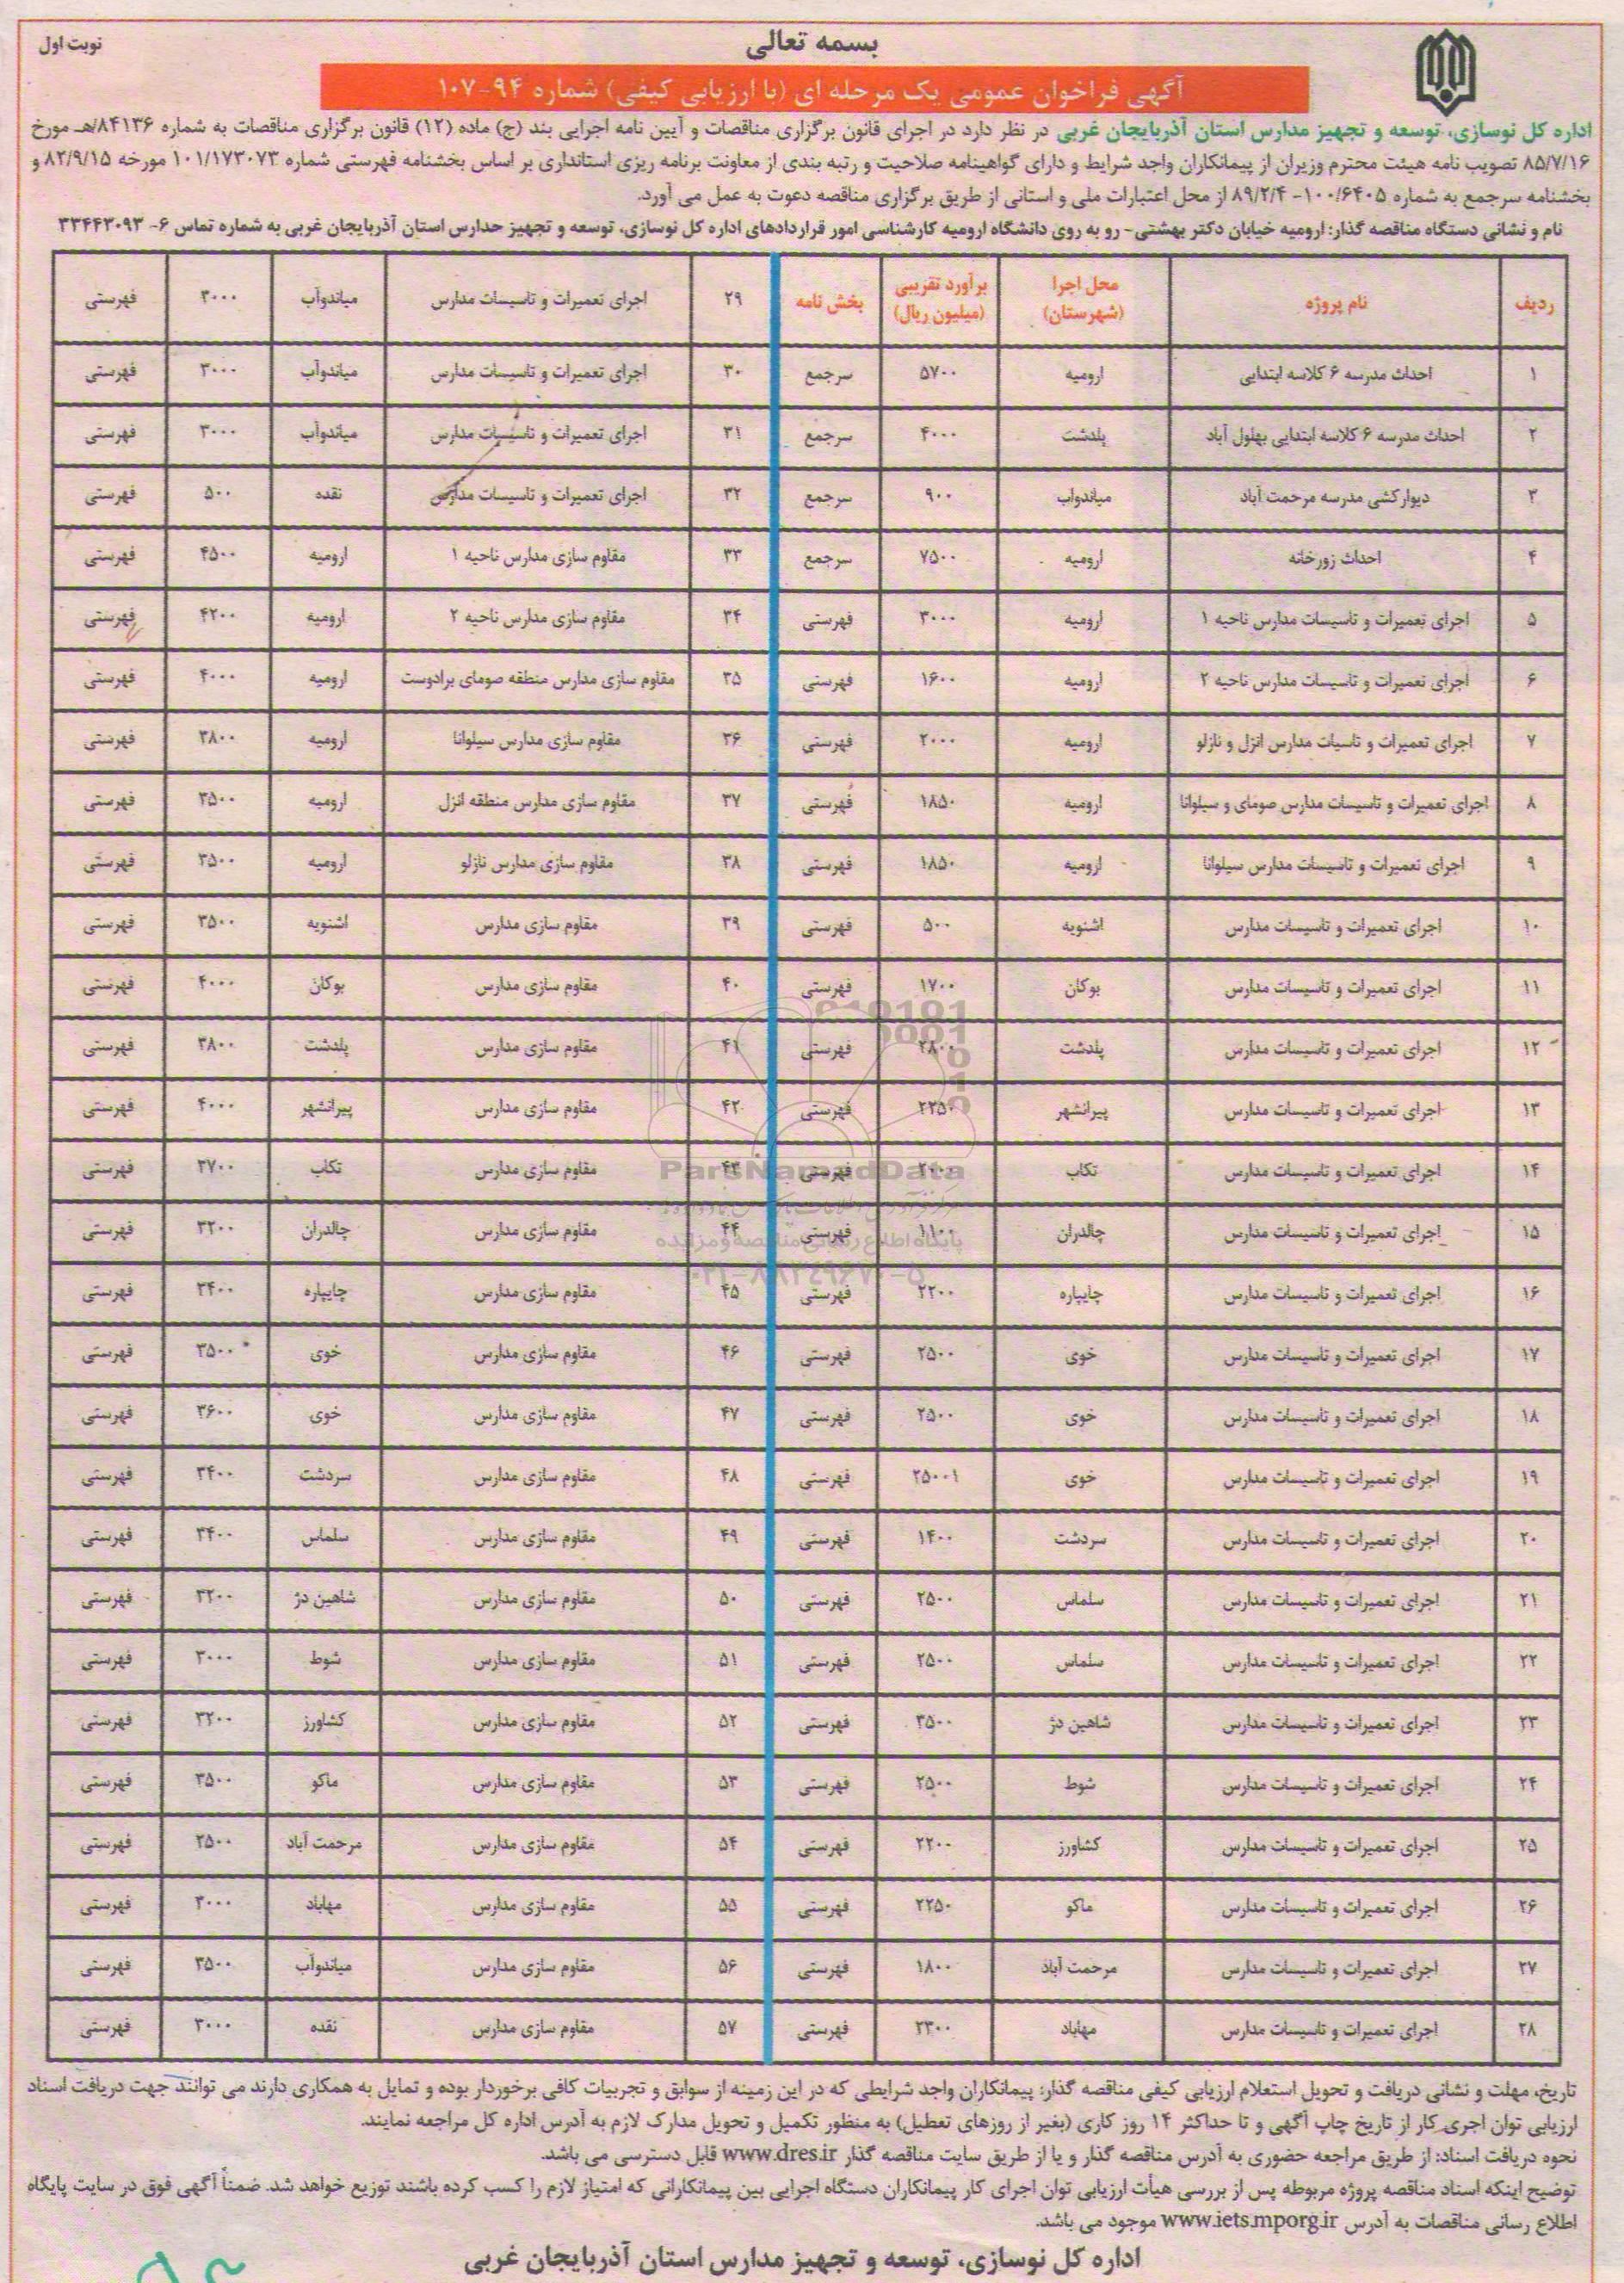 بسمه تعالی
نوبت اول
آگهی فراخوان عمومی یک مرحله ای (با ارزیابی کیفی) شماره ۹۴-۱۰۷
اداره کل نوسازی، توسعه و تجهیز مدارس استان آذربایجان غربی در نظر دارد در اجرای قانون برگزاری مناقصات و آیین نامه اجرایی بند (ج) ماده (۱۲) قانون برگزاری مناقصات به شماره ۸۴۱۳۶/هـ مورخ
۸۵/۷/۱۶ تصویب نامه هیئت محترم وزیران از پیمانکاران واجد شرایط و دارای گواهینامه صلاحیت و رتبه بندی از معاونت برنامه ریزی استانداری بر اساس بخشنامه فهرستی شماره ۱۰۱/۱۷۳۰۷۳ مورخه ۸۲/۹/۱۵ و
بخشنامه سرجمع به شماره ۱۰۰/۶۴۰۵- ۸۹/۲/۴ از محل اعتبارات ملی و استانی از طریق برگزاری مناقصه دعوت به عمل می آورد.
نام و نشانی دستگاه مناقصه گذار: ارومیه خیابان دکتر بهشتی- رو به روی دانشگاه ارومیه کارشناسی امور قراردادهای اداره کل نوسازی، توسعه و تجهیز مدارس استان آذربایجان غربی به شماره تماس ۶- ۳۳۴۴۳۰۹۳
ردیف نام پروژه محل اجرا (شهرستان) برآورد تقریبی (میلیون ریال) بخش نامه
۱ احداث مدرسه ۶ کلاسه ابتدایی ارومیه ۵۷۰۰ سرجمع
۲ احداث مدرسه ۶ کلاسه ابتدایی بهلول آباد پلدشت ۴۰۰۰ سرجمع
۳ دیوارکشی مدرسه مرحمت آباد میاندواب ۹۰۰ سرجمع
۴ احداث زورخانه ارومیه ۷۵۰۰ سرجمع
۵ اجرای تعمیرات و تاسیسات مدارس ناحیه ۱ ارومیه ۳۰۰۰ فهرستی
۶ اجرای تعمیرات و تاسیسات مدارس ناحیه ۲ ارومیه ۱۶۰۰ فهرستی
۷ اجرای تعمیرات و تاسیات مدارس انزل و نازلو ارومیه ۲۰۰۰ فهرستی
۸ اجرای تعمیرات و تاسیسات مدارس صومای و سیلوانا ارومیه ۱۸۵۰ فهرستی
۹ اجرای تعمیرات و تاسیسات مدارس سیلوانا ارومیه ۱۸۵۰ فهرستی
۱۰ اجرای تعمیرات و تاسیسات مدارس اشنویه ۵۰۰ فهرستی
۱۱ اجرای تعمیرات و تاسیسات مدارس بوکان ۱۷۰۰ فهرستی
۱۲ اجرای تعمیرات و تاسیسات مدارس پلدشت فهرستی
۱۳ اجرای تعمیرات و تاسیسات مدارس پیرانشهر فهرستی
۱۴ اجرای تعمیرات و تاسیسات مدارس تکاب فهرستی
۱۵ اجرای تعمیرات و تاسیسات مدارس چالدران فهرستی
۱۶ اجرای تعمیرات و تاسیسات مدارس چایپاره ۲۲۰۰ فهرستی
۱۷ اجرای تعمیرات و تاسیسات مدارس خوی ۲۵۰۰ فهرستی
۱۸ اجرای تعمیرات و تاسیسات مدارس خوی ۲۵۰۰ فهرستی
۱۹ اجرای تعمیرات و تاسیسات مدارس خوی ۲۵۰۰۱ فهرستی
۲۰ اجرای تعمیرات و تاسیسات مدارس سردشت ۱۴۰۰ فهرستی
۲۱ اجرای تعمیرات و تاسیسات مدارس سلماس ۲۵۰۰ فهرستی
۲۲ اجرای تعمیرات و تاسیسات مدارس سلماس ۲۵۰۰ فهرستی
۲۳ اجرای تعمیرات و تاسیسات مدارس شاهین دژ فهرستی
۲۴ اجرای تعمیرات و تاسیسات مدارس شوط ۲۵۰۰ فهرستی
۲۵ اجرای تعمیرات و تاسیسات مدارس کشاورز ۲۲۰۰ فهرستی
۲۶ اجرای تعمیرات و تاسیسات مدارس ماکو ۲۲۵۰ فهرستی
۲۷ اجرای تعمیرات و تاسیسات مدارس مرحمت آباد ۱۸۰۰ فهرستی
۲۸ اجرای تعمیرات و تاسیسات مدارس مهاباد فهرستی
۲۹ اجرای تعمیرات و تاسیسات مدارس میاندوآب فهرستی
۳۰ اجرای تعمیرات و تاسیسات مدارس میاندوآب فهرستی
۳۱ اجرای تعمیرات و تاسیسات مدارس میاندوآب فهرستی
۳۲ اجرای تعمیرات و تاسیسات مدارس نقده ۵۰۰ فهرستی
۳۳ مقاوم سازی مدارس ناحیه ۱ ارومیه ۴۵۰۰ فهرستی
۳۴ مقاوم سازی مدارس ناحیه ۲ ارومیه ۴۲۰۰ فهرستی
۳۵ مقاوم سازی مدارس منطقه صومای برادوست ارومیه ۴۰۰۰ فهرستی
۳۶ مقاوم سازی مدارس سیلوانا ارومیه ۳۸۰۰ فهرستی
۳۷ مقاوم سازی مدارس منطقه انزل ارومیه ۳۵۰۰ فهرستی
۳۸ مقاوم سازی مدارس نازلو ارومیه ۳۵۰۰ فهرستی
۳۹ مقاوم سازی مدارس اشنویه ۳۵۰۰ فهرستی
۴۰ مقاوم سازی مدارس بوکان ۴۰۰۰ فهرستی
۴۱ مقاوم سازی مدارس پلدشت ۳۸۰۰ فهرستی
۴۲ مقاوم سازی مدارس پیرانشهر ۴۰۰۰ فهرستی
۴۳ مقاوم سازی مدارس تکاب ۳۷۰۰ فهرستی
۴۴ مقاوم سازی مدارس چالدران ۳۲۰۰ فهرستی
۴۵ مقاوم سازی مدارس چایپاره ۳۴۰۰ فهرستی
۴۶ مقاوم سازی مدارس خوی ۳۵۰۰ فهرستی
۴۷ مقاوم سازی مدارس خوی ۳۶۰۰ فهرستی
۴۸ مقاوم سازی مدارس سردشت ۳۴۰۰ فهرستی
۴۹ مقاوم سازی مدارس سلماس ۳۴۰۰ فهرستی
۵۰ مقاوم سازی مدارس شاهین دژ ۳۲۰۰ فهرستی
۵۱ مقاوم سازی مدارس شوط ۳۰۰۰ فهرستی
۵۲ مقاوم سازی مدارس کشاورز ۳۲۰۰ فهرستی
۵۳ مقاوم سازی مدارس ماکو ۳۵۰۰ فهرستی
۵۴ مقاوم سازی مدارس مرحمت آباد ۲۵۰۰ فهرستی
۵۵ مقاوم سازی مدارس مهاباد فهرستی
۵۶ مقاوم سازی مدارس میاندوآب ۳۵۰۰ فهرستی
۵۷ مقاوم سازی مدارس نقده ۳۰۰۰ فهرستی
ParsNamadData
پایگاه اطلاع رسانی مناقصه و مزایده
۰۲۱-۸۸۳۴۹۶۷۰-۵
تاریخ، مهلت و نشانی دریافت و تحویل استعلام ارزیابی کیفی مناقصه گذار: پیمانکاران واجد شرایطی که در این زمینه از سوابق و تجربیات کافی برخوردار بوده و تمایل به همکاری دارند می توانند جهت دریافت اسناد
ارزیابی توان اجری کار از تاریخ چاپ آگهی و تا حداکثر ۱۴ روز کاری (بغیر از روزهای تعطیل) به منظور تکمیل و تحویل مدارک لازم به آدرس اداره کل مراجعه نمایند.
نحوه دریافت اسناد: از طریق مراجعه حضوری به آدرس مناقصه گذار و یا از طریق سایت مناقصه گذار www.dres.ir قابل دسترسی می باشد.
توضیح اینکه اسناد مناقصه پروژه مربوطه پس از بررسی هیأت ارزیابی توان اجرای کار پیمانکاران دستگاه اجرایی بین پیمانکارانی که امتیاز لازم را کسب کرده باشند توزیع خواهد شد. ضمناً آگهی فوق در سایت پایگاه
اطلاع رسانی مناقصات به آدرس www.iets.mporg.ir موجود می باشد.
اداره کل نوسازی، توسعه و تجهیز مدارس استان آذربایجان غربی